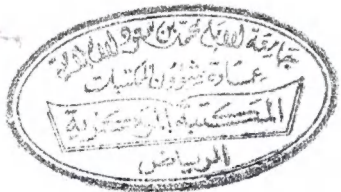 جامعة الإمام محمد بن سعود الإسلامية
عمادة شؤون المكتبات
المكتبة المركزية
الرياض